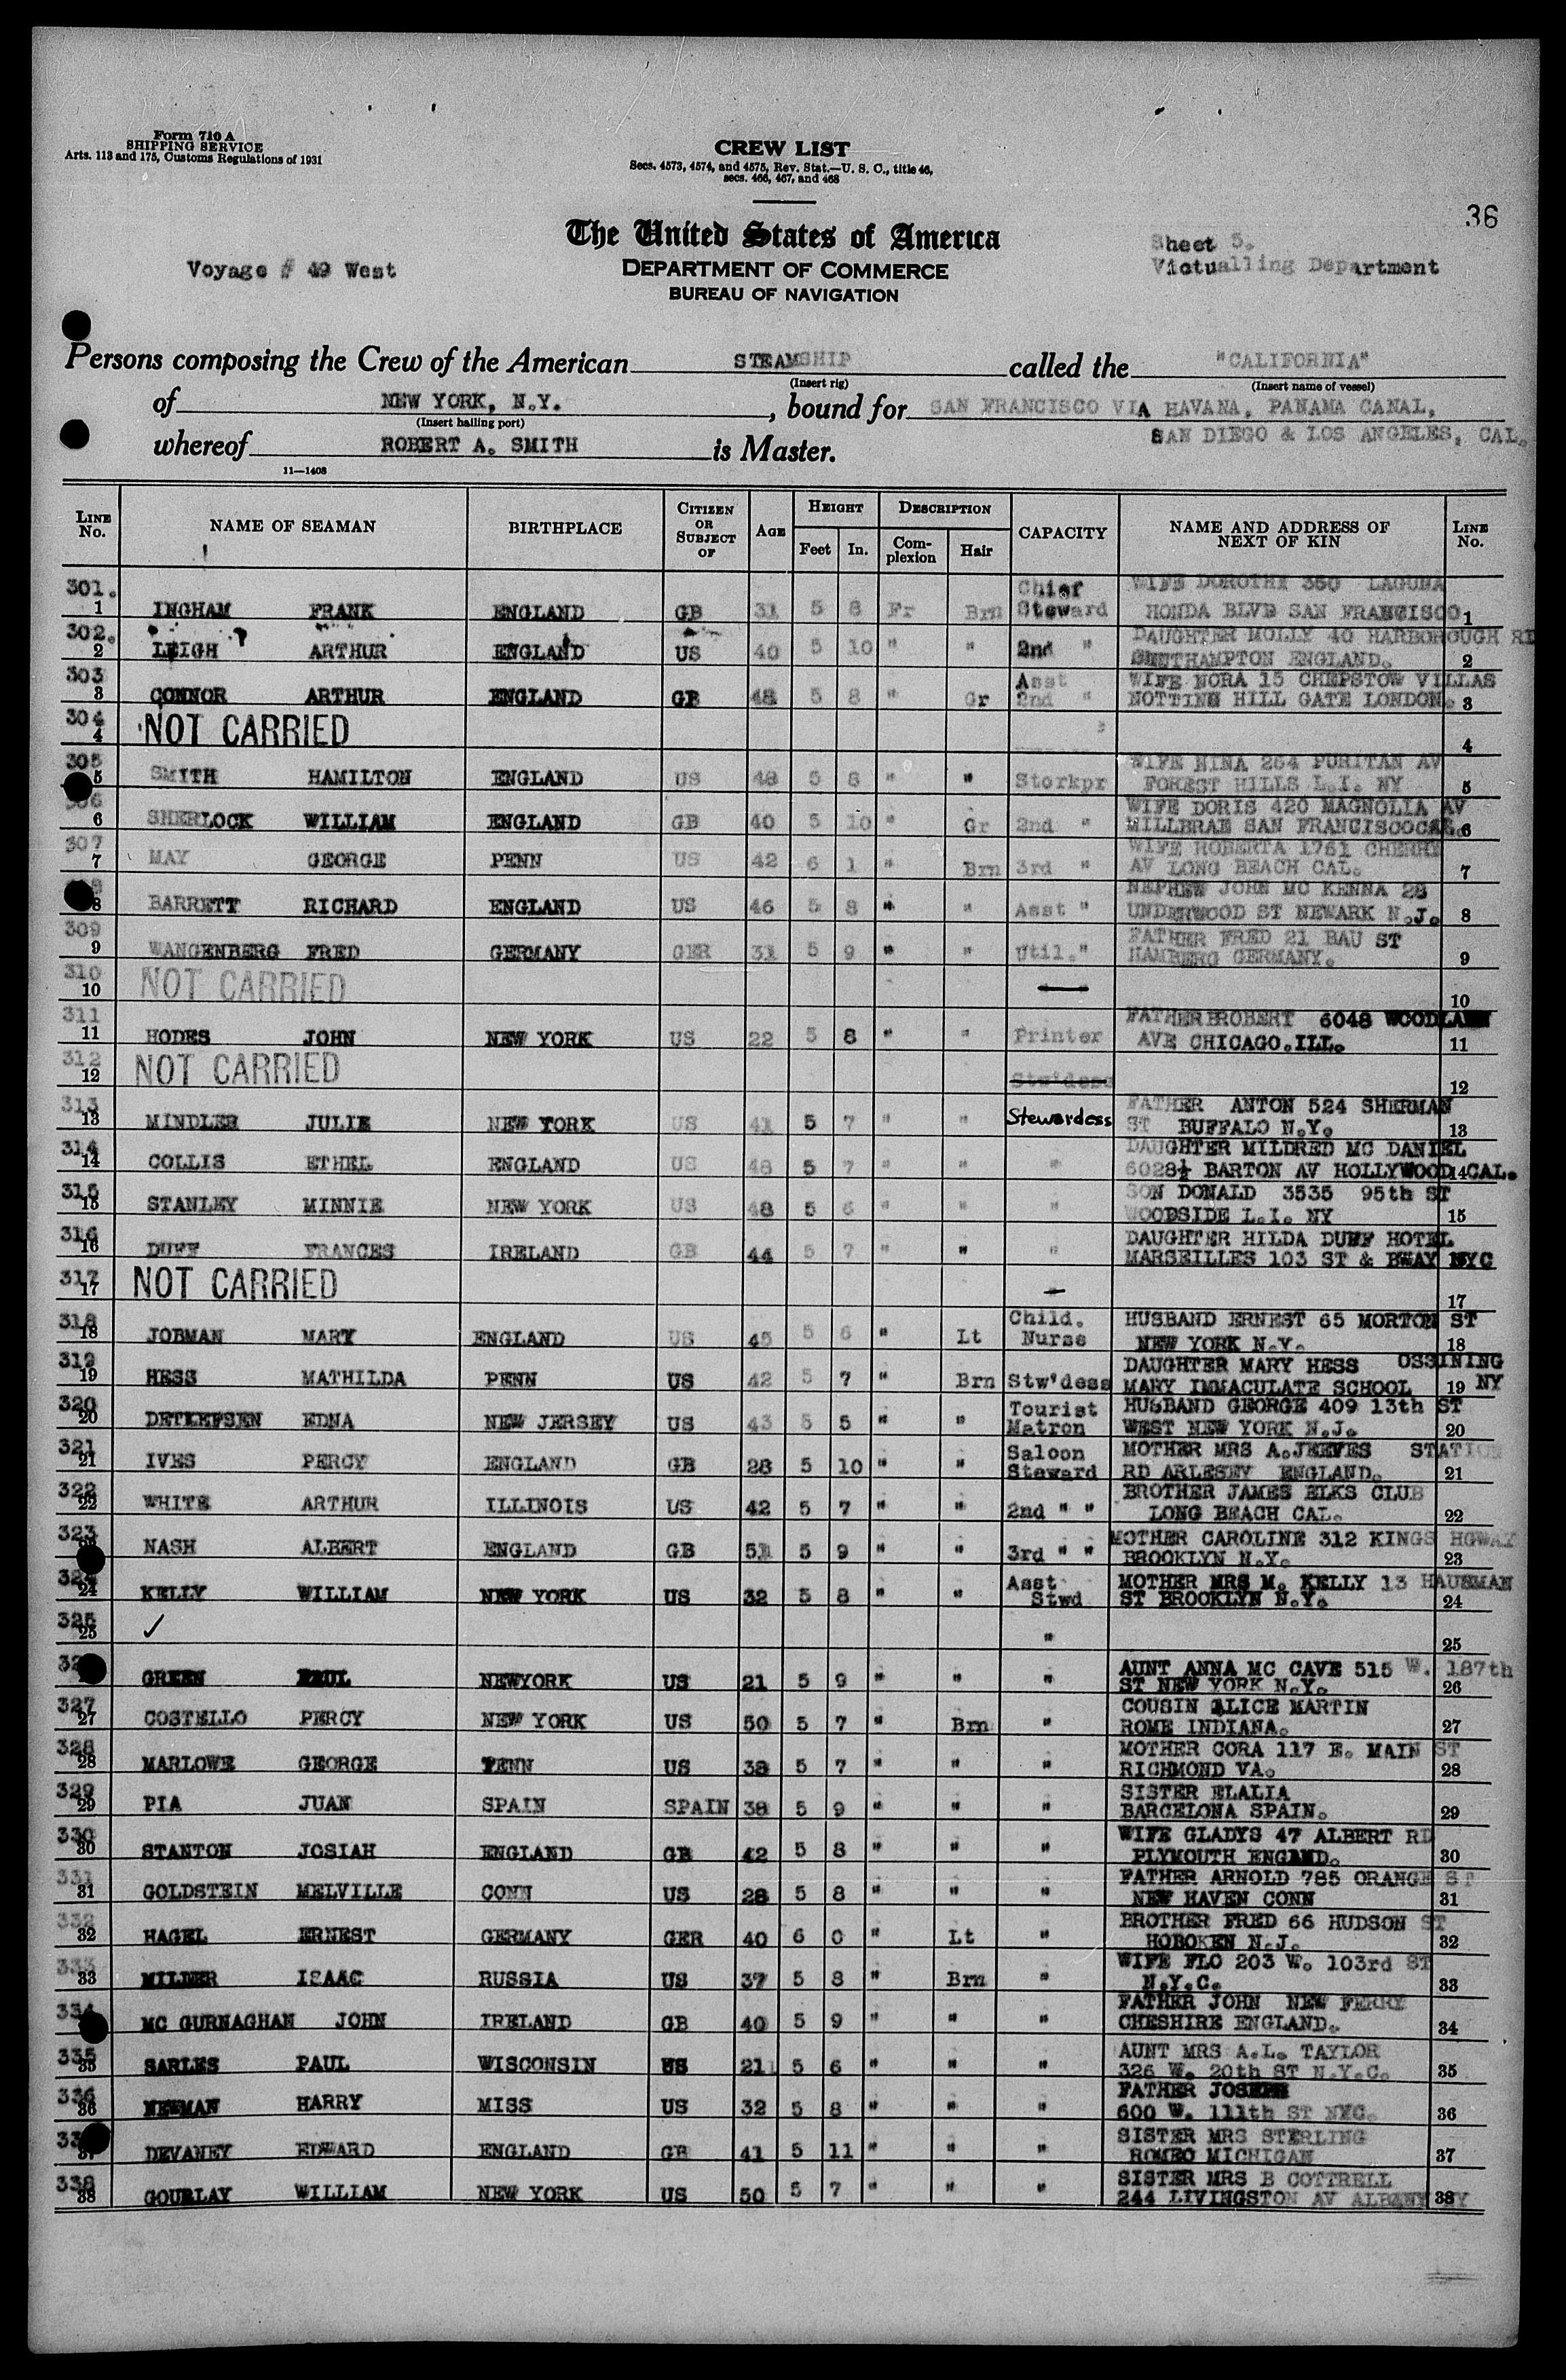 Form 710 A
SHIPPING SERVICE
Arts. 113 and 175, Customs Regulations of 1931
CREW LIST
Secs. 4573, 4574, and 4575, Rev. Stat.—U. S. C., title 46,
secs. 466, 467, and 468
36
The United States of America
DEPARTMENT OF COMMERCE
BUREAU OF NAVIGATION
Voyage # 49 West
Sheet 5.
Victualling Department
Persons composing the Crew of the American STEAMSHIP called the "CALIFORNIA"
(Insert rig) (Insert name of vessel)
of NEW YORK, N.Y. , bound for SAN FRANCISCO VIA HAVANA, PANAMA CANAL,
(Insert hailing port)
SAN DIEGO & LOS ANGELES, CAL.
whereof ROBERT A. SMITH is Master.
11—1408
LINE No. NAME OF SEAMAN BIRTHPLACE CITIZEN OR SUBJECT OF AGE HEIGHT Feet In. DESCRIPTION Complexion Hair CAPACITY NAME AND ADDRESS OF NEXT OF KIN LINE No.
301. 1 INGHAM FRANK ENGLAND GB 31 5 8 Fr Brn Chief Steward WIFE DOROTHY 350 LAGUNA HONDA BLVD SAN FRANCISCO 1
302. 2 LEIGH ARTHUR ENGLAND US 40 5 10 " " 2nd " DAUGHTER MOLLY 40 HARBOROUGH RD SOUTHAMPTON ENGLAND. 2
303 3 CONNOR ARTHUR ENGLAND GB 48 5 8 " Gr Asst 2nd " WIFE NORA 15 CHEPSTOW VILLAS NOTTING HILL GATE LONDON. 3
304 4 NOT CARRIED 4
305 5 SMITH HAMILTON ENGLAND US 48 5 8 " " Storkpr WIFE NINA 254 PURITAN AV FOREST HILLS L.I. NY 5
306 6 SHERLOCK WILLIAM ENGLAND GB 40 5 10 " Gr 2nd " WIFE DORIS 420 MAGNOLIA AV MILLBRAE SAN FRANCISCO CAL. 6
307 7 MAY GEORGE PENN US 42 6 1 " Brn 3rd " WIFE ROBERTA 1761 CHERRY AV LONG BEACH CAL. 7
8 BARRETT RICHARD ENGLAND US 46 5 8 " " Asst " NEPHEW JOHN MC KENNA 28 UNDERWOOD ST NEWARK N.J. 8
309 9 WANGENBERG FRED GERMANY GER 31 5 9 " " Util." FATHER FRED 21 BAU ST HAMBERG GERMANY. 9
310 10 NOT CARRIED 10
311 11 HODES JOHN NEW YORK US 22 5 8 " " Printer FATHER ROBERT 6048 WOODLAWN AVE CHICAGO.ILL. 11
312 12 NOT CARRIED Stw'dess 12
313 13 MINDLER JULIE NEW YORK US 41 5 7 " " Stewardess FATHER ANTON 524 SHERMAN ST BUFFALO N.Y. 13
314 14 COLLIS ETHEL ENGLAND US 48 5 7 " " " DAUGHTER MILDRED MC DANIEL 6028½ BARTON AV HOLLYWOOD CAL. 14
315 15 STANLEY MINNIE NEW YORK US 48 5 6 " " " SON DONALD 3535 95th ST WOODSIDE L.I. NY 15
316 16 DUFF FRANCES IRELAND GB 44 5 7 " " " DAUGHTER HILDA DUFF HOTEL MARSEILLES 103 ST & BWAY NYC
317 17 NOT CARRIED 17
318 18 JOBMAN MARY ENGLAND US 45 5 6 " Lt Child. Nurse HUSBAND ERNEST 65 MORTON ST NEW YORK N.Y. 18
319 19 HESS MATHILDA PENN US 42 5 7 " Brn Stw'dess DAUGHTER MARY HESS OSSINING MARY IMMACULATE SCHOOL NY 19
320 20 DETLEFSEN EDNA NEW JERSEY US 43 5 5 " " Tourist Matron HUSBAND GEORGE 409 13th ST WEST NEW YORK N.J. 20
321 21 IVES PERCY ENGLAND GB 28 5 10 " " Saloon Steward MOTHER MRS A.JEEVES STATION RD ARLESEY ENGLAND. 21
322 22 WHITE ARTHUR ILLINOIS US 42 5 7 " " 2nd " " BROTHER JAMES ELKS CLUB LONG BEACH CAL. 22
323 NASH ALBERT ENGLAND GB 51 5 9 " " 3rd " " MOTHER CAROLINE 312 KINGS HGWAY BROOKLYN N.Y. 23
324 24 KELLY WILLIAM NEW YORK US 32 5 8 " " Asst Stwd MOTHER MRS M. KELLY 13 HAUSMAN ST BROOKLYN N.Y. 24
325 25 ✓ " 25
GREEN PAUL NEWYORK US 21 5 9 " " " AUNT ANNA MC CAVE 515 W. 187th ST NEW YORK N.Y. 26
327 27 COSTELLO PERCY NEW YORK US 50 5 7 " Brn " COUSIN ALICE MARTIN ROME INDIANA. 27
328 28 MARLOWE GEORGE PENN US 38 5 7 " " " MOTHER CORA 117 E. MAIN ST RICHMOND VA. 28
329 29 PIA JUAN SPAIN SPAIN 38 5 9 " " " SISTER ELALIA BARCELONA SPAIN. 29
330 30 STANTON JOSIAH ENGLAND GB 42 5 8 " " " WIFE GLADYS 47 ALBERT RD PLYMOUTH ENGLAND. 30
331 31 GOLDSTEIN MELVILLE CONN US 28 5 8 " " " FATHER ARNOLD 785 ORANGE ST NEW HAVEN CONN 31
332 32 HAGEL ERNEST GERMANY GER 40 6 0 " Lt " BROTHER FRED 66 HUDSON ST HOBOKEN N.J. 32
333 33 MILDER ISAAC RUSSIA US 37 5 8 " Brn " WIFE FLO 203 W. 103rd ST N.Y.C. 33
334 MC GURNAGHAN JOHN IRELAND GB 40 5 9 " " " FATHER JOHN NEW FERRY CHESHIRE ENGLAND. 34
335 35 SARLES PAUL WISCONSIN US 21 5 6 " " " AUNT MRS A.L. TAYLOR 326 W. 20th ST N.Y.C. 35
336 36 NEWMAN HARRY MISS US 32 5 8 " " " FATHER JOSEPH 600 W. 111th ST NYC. 36
37 DEVANEY EDWARD ENGLAND GB 41 5 11 " " " SISTER MRS STERLING ROMEO MICHIGAN 37
338 38 GOURLAY WILLIAM NEW YORK US 50 5 7 " " " SISTER MRS B COTTRELL 244 LIVINGSTON AV ALBANY NY 38